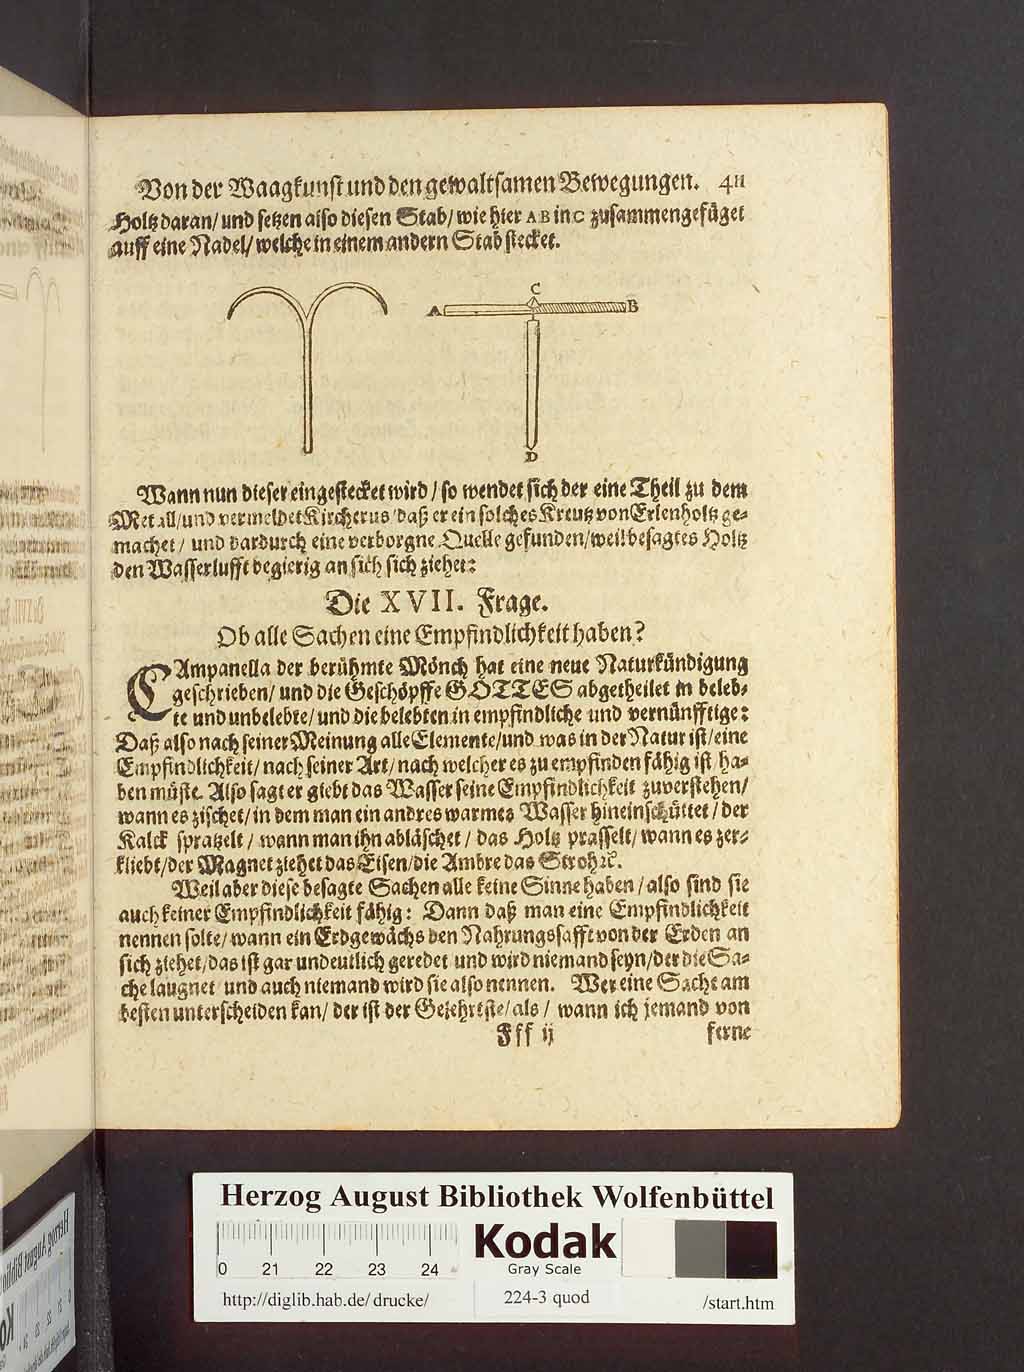 Von der Waagkunst und den gewaltsamen Bewegungen. 411
Holtz daran/ und setzen also diesen Stab/ wie hier AB in C zusammengefüget
auff eine Nadel/ welche in einem andern Stab stecket.
C
A B
D
Wann nun dieser eingestecket wird/ so wendet sich der eine Theil zu dem
Metall/ und vermeldet Kircherus/ daß er ein solches Kreutz von Erlenholtz ge-
machet/ und dardurch eine verborgne Quelle gefunden/ weil besagtes Holtz
den Wasserlufft begierig an sich sich ziehet:
Die XVII. Frage.
Ob alle Sachen eine Empfindlichkeit haben?
CAmpanella der berühmte Mönch hat eine neue Naturkündigung
geschrieben/ und die Geschöpffe GOTTES abgetheilet in beleb-
te und unbelebte/ und die belebten in empfindliche und vernünfftige:
Daß also nach seiner Meinung alle Elemente/ und was in der Natur ist/ eine
Empfindlichkeit/ nach seiner Art/ nach welcher es zu empfinden fähig ist/ ha-
ben müste. Also sagt er giebt das Wasser seine Empfindlichkeit zuverstehen/
wann es zischet/ in dem man ein andres warmes Wasser hineinschüttet/ der
Kalck spratzelt/ wann man ihn abläschet/ das Holtz prasselt/ wann es zer-
kliebt/ der Magnet ziehet das Eisen/ die Ambre das Stroh ꝛc.
Weil aber diese besagte Sachen alle keine Sinne haben/ also sind sie
auch keiner Empfindlichkeit fähig: Dann daß man eine Empfindlichkeit
nennen solte/ wann ein Erdgewächs den Nahrungssafft von der Erden an
sich ziehet/ das ist gar undeutlich geredet und wird niemand seyn/ der die Sa-
che laugnet und auch niemand wird sie also nennen. Wer eine Sache am
besten unterscheiden kan/ der ist der Gelehrtste/ als/ wann ich jemand von
Fff ij ferne
Herzog August Bibliothek Wolfenbüttel
Kodak
Gray Scale
0 21 22 23 24
http://diglib.hab.de/drucke/ 224-3 quod /start.htm